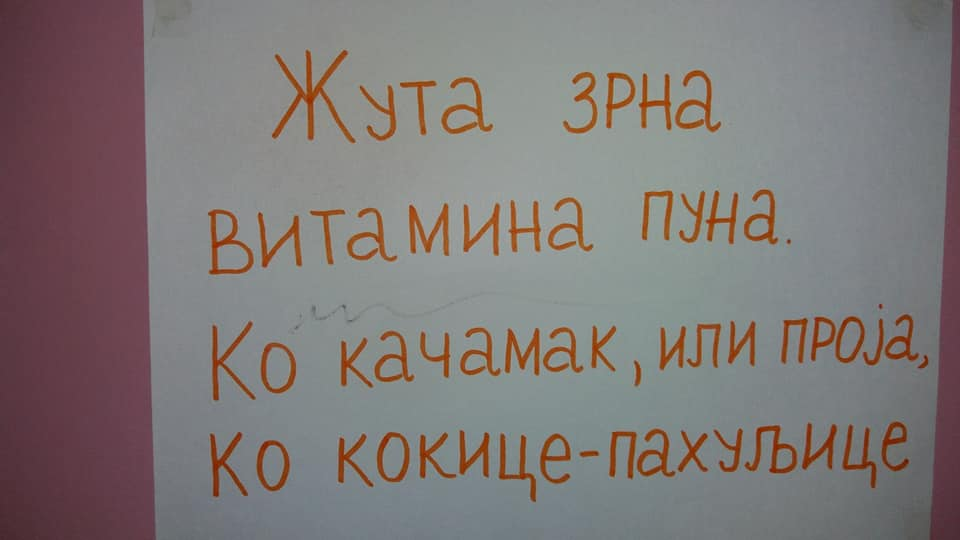 Жута зрна
витамина пуна.
Ко качамак, или проја,
ко кокице-пахуљице